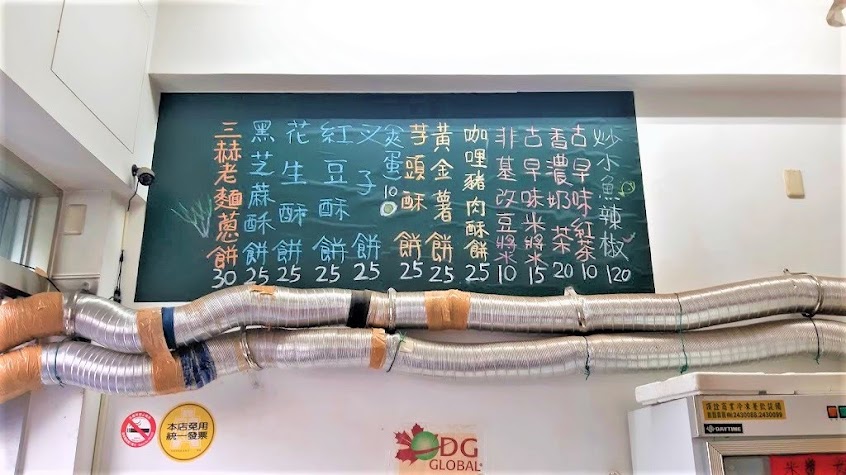 三赫老麵蔥餅 30
黑芝蔴酥餅 25
花生酥餅 25
紅豆酥餅 25
叉子餅 25
煎蛋 10
芋頭酥餅 25
黃金薯餅 25
咖哩豬肉酥餅 25
非基改豆漿 10
古早味米漿 15
香濃奶茶 20
古早味紅茶 10
炒小魚辣椒 120
本店免用
統一發票
DG
GLOBAL
DAYTIME